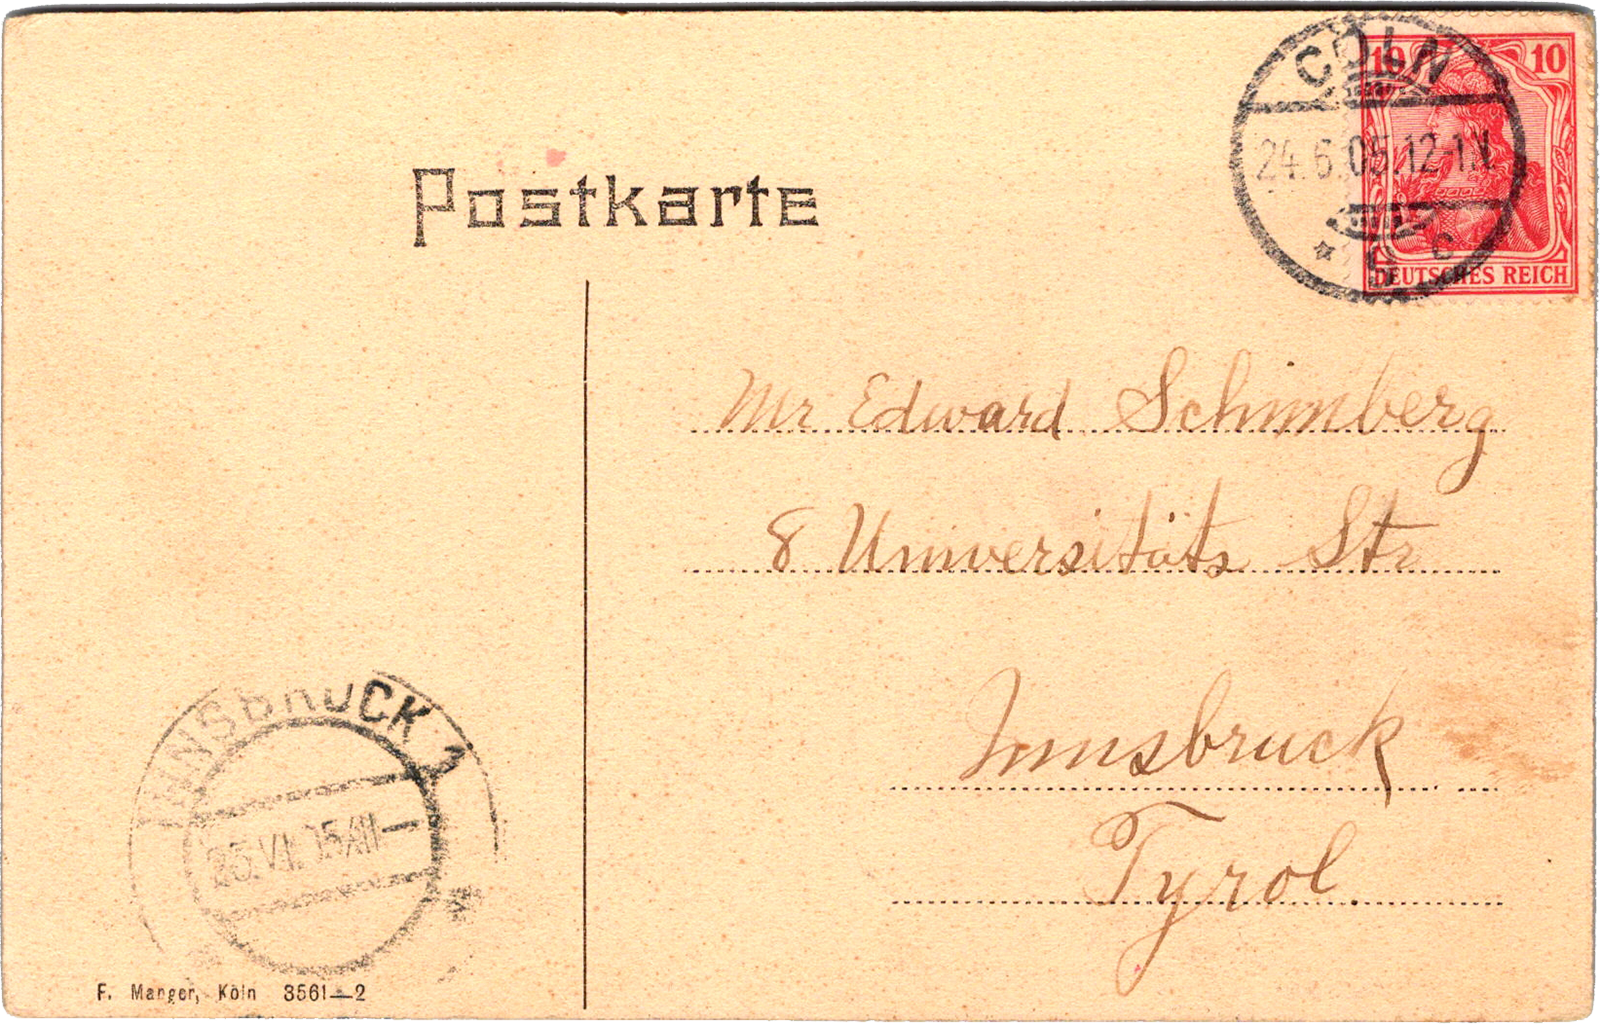 Postkarte
CÖLN
24.6.05.12-1N.
* c
10 10
DEUTSCHES REICH
Mr Edward Schimberg
8 Universitäts Str
Innsbruck
Tyrol.
INNSBRUCK 1
25.VI.
F. Manger, Köln 3561—2